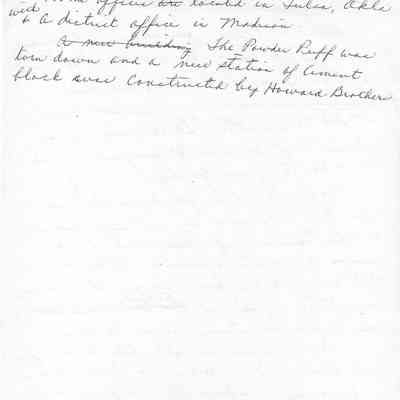 with offices are located in Tulsa, Okla
& A district office in Madison
A new building The Powder Puff was
torn down and a new station of Cement
block was constructed by Howard Brothers